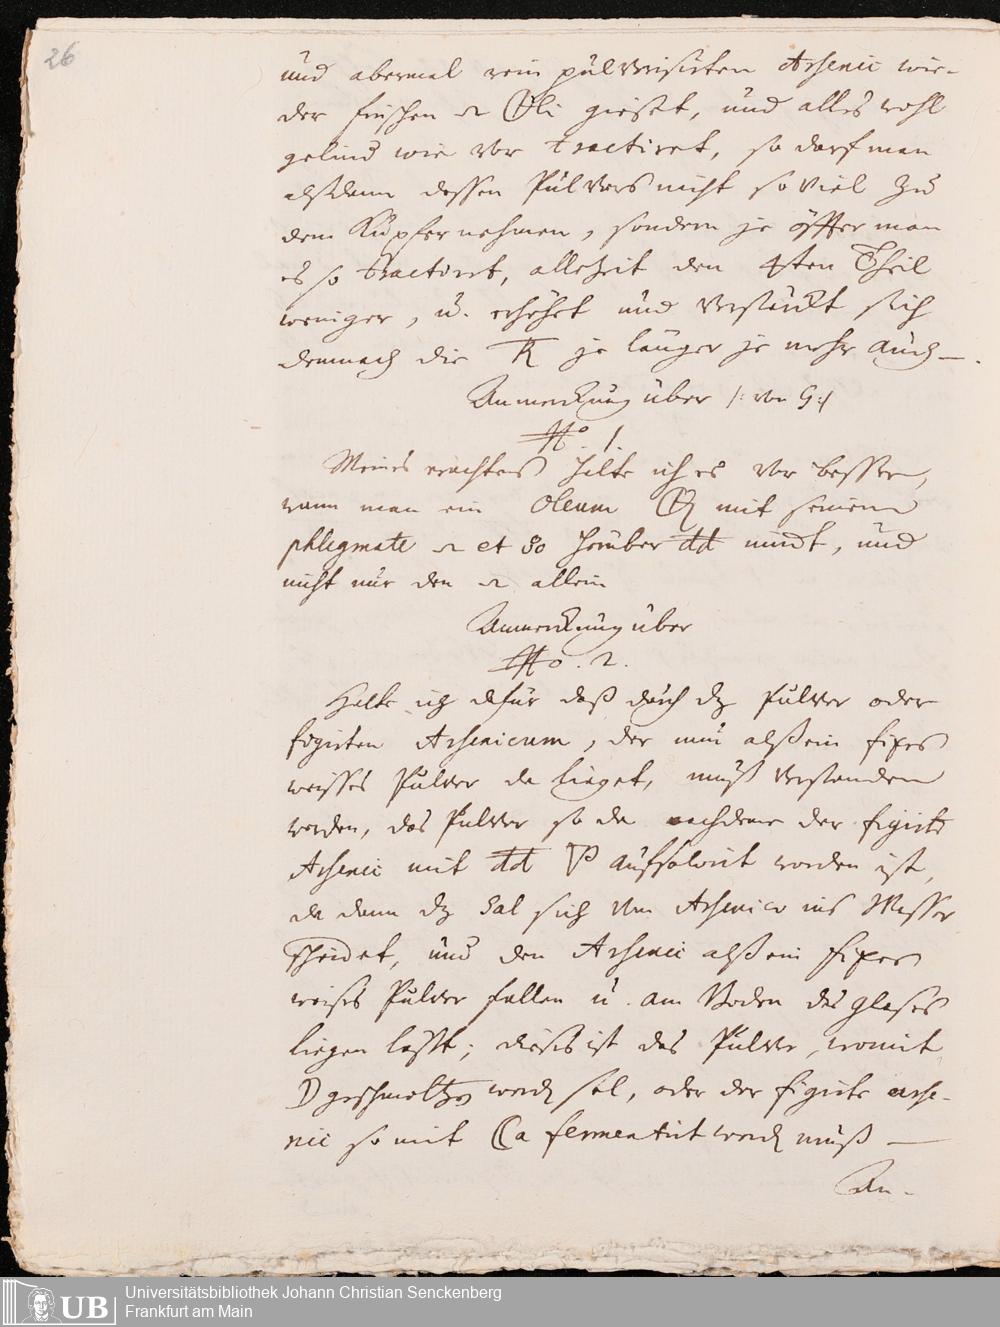 26
und abermal rein pulverisirten Arsenic wie-
der frischen Oli gießet, und alles wohl
gelind wie vor tractiret, so darf man
alßdann dessen Pulvers nicht so viel zu
dem Kupfer nehmen, sondern je öffter man
es so tractiret, allezeit den 4ten Theil
weniger, u. erhöhet und verstärckt sich
demnach die je länger je mehr auch —.
Anmerckung über /: von G :/
No. 1.
Meines erachtens hilte ich es vor besser,
wann man ein Oleum mit seinem
phlegmate et so herüber nimbt, und
nicht nur den allein
Anmerckung über
No. 2.
Halte ich dafür daß durch dz Pulver oder
figirten Arsenicum, der nun alß ein fixes
weisses Pulver da lieget, muß verstanden
werden, das Pulver so da nachdeme der figirte
Arsenic mit aufsolvirt worden ist,
da dann dz Sal sich vom Arsenico ins Wasser
scheidet, und den Arsenic alß ein fixes
weises Pulver fallen u. am Boden des glases
liegen läßt; dieses ist das Pulver, womit
geschmoltzen werden sol, oder der figirte arse-
nic so mit fermentirt werden muß —
An-
UB
Universitätsbibliothek Johann Christian Senckenberg
Frankfurt am Main